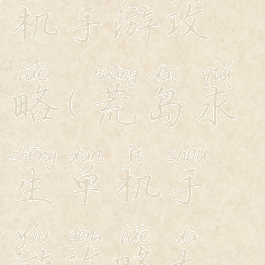 机手游攻
lüè huāng dǎo qiú
略(荒岛求
shēng dān jī shǒu
生单机手
yóu gōng lüè dà
游攻略大